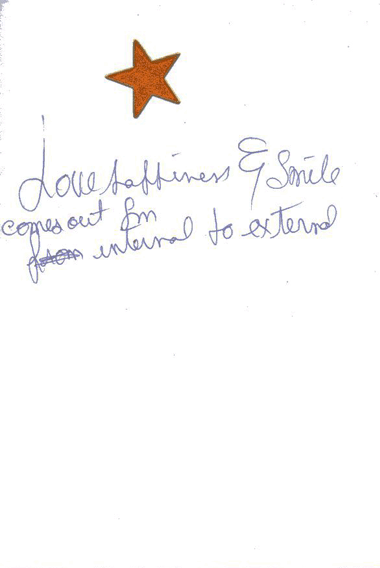 Love happiness & Smile
comes out fm
internal to external